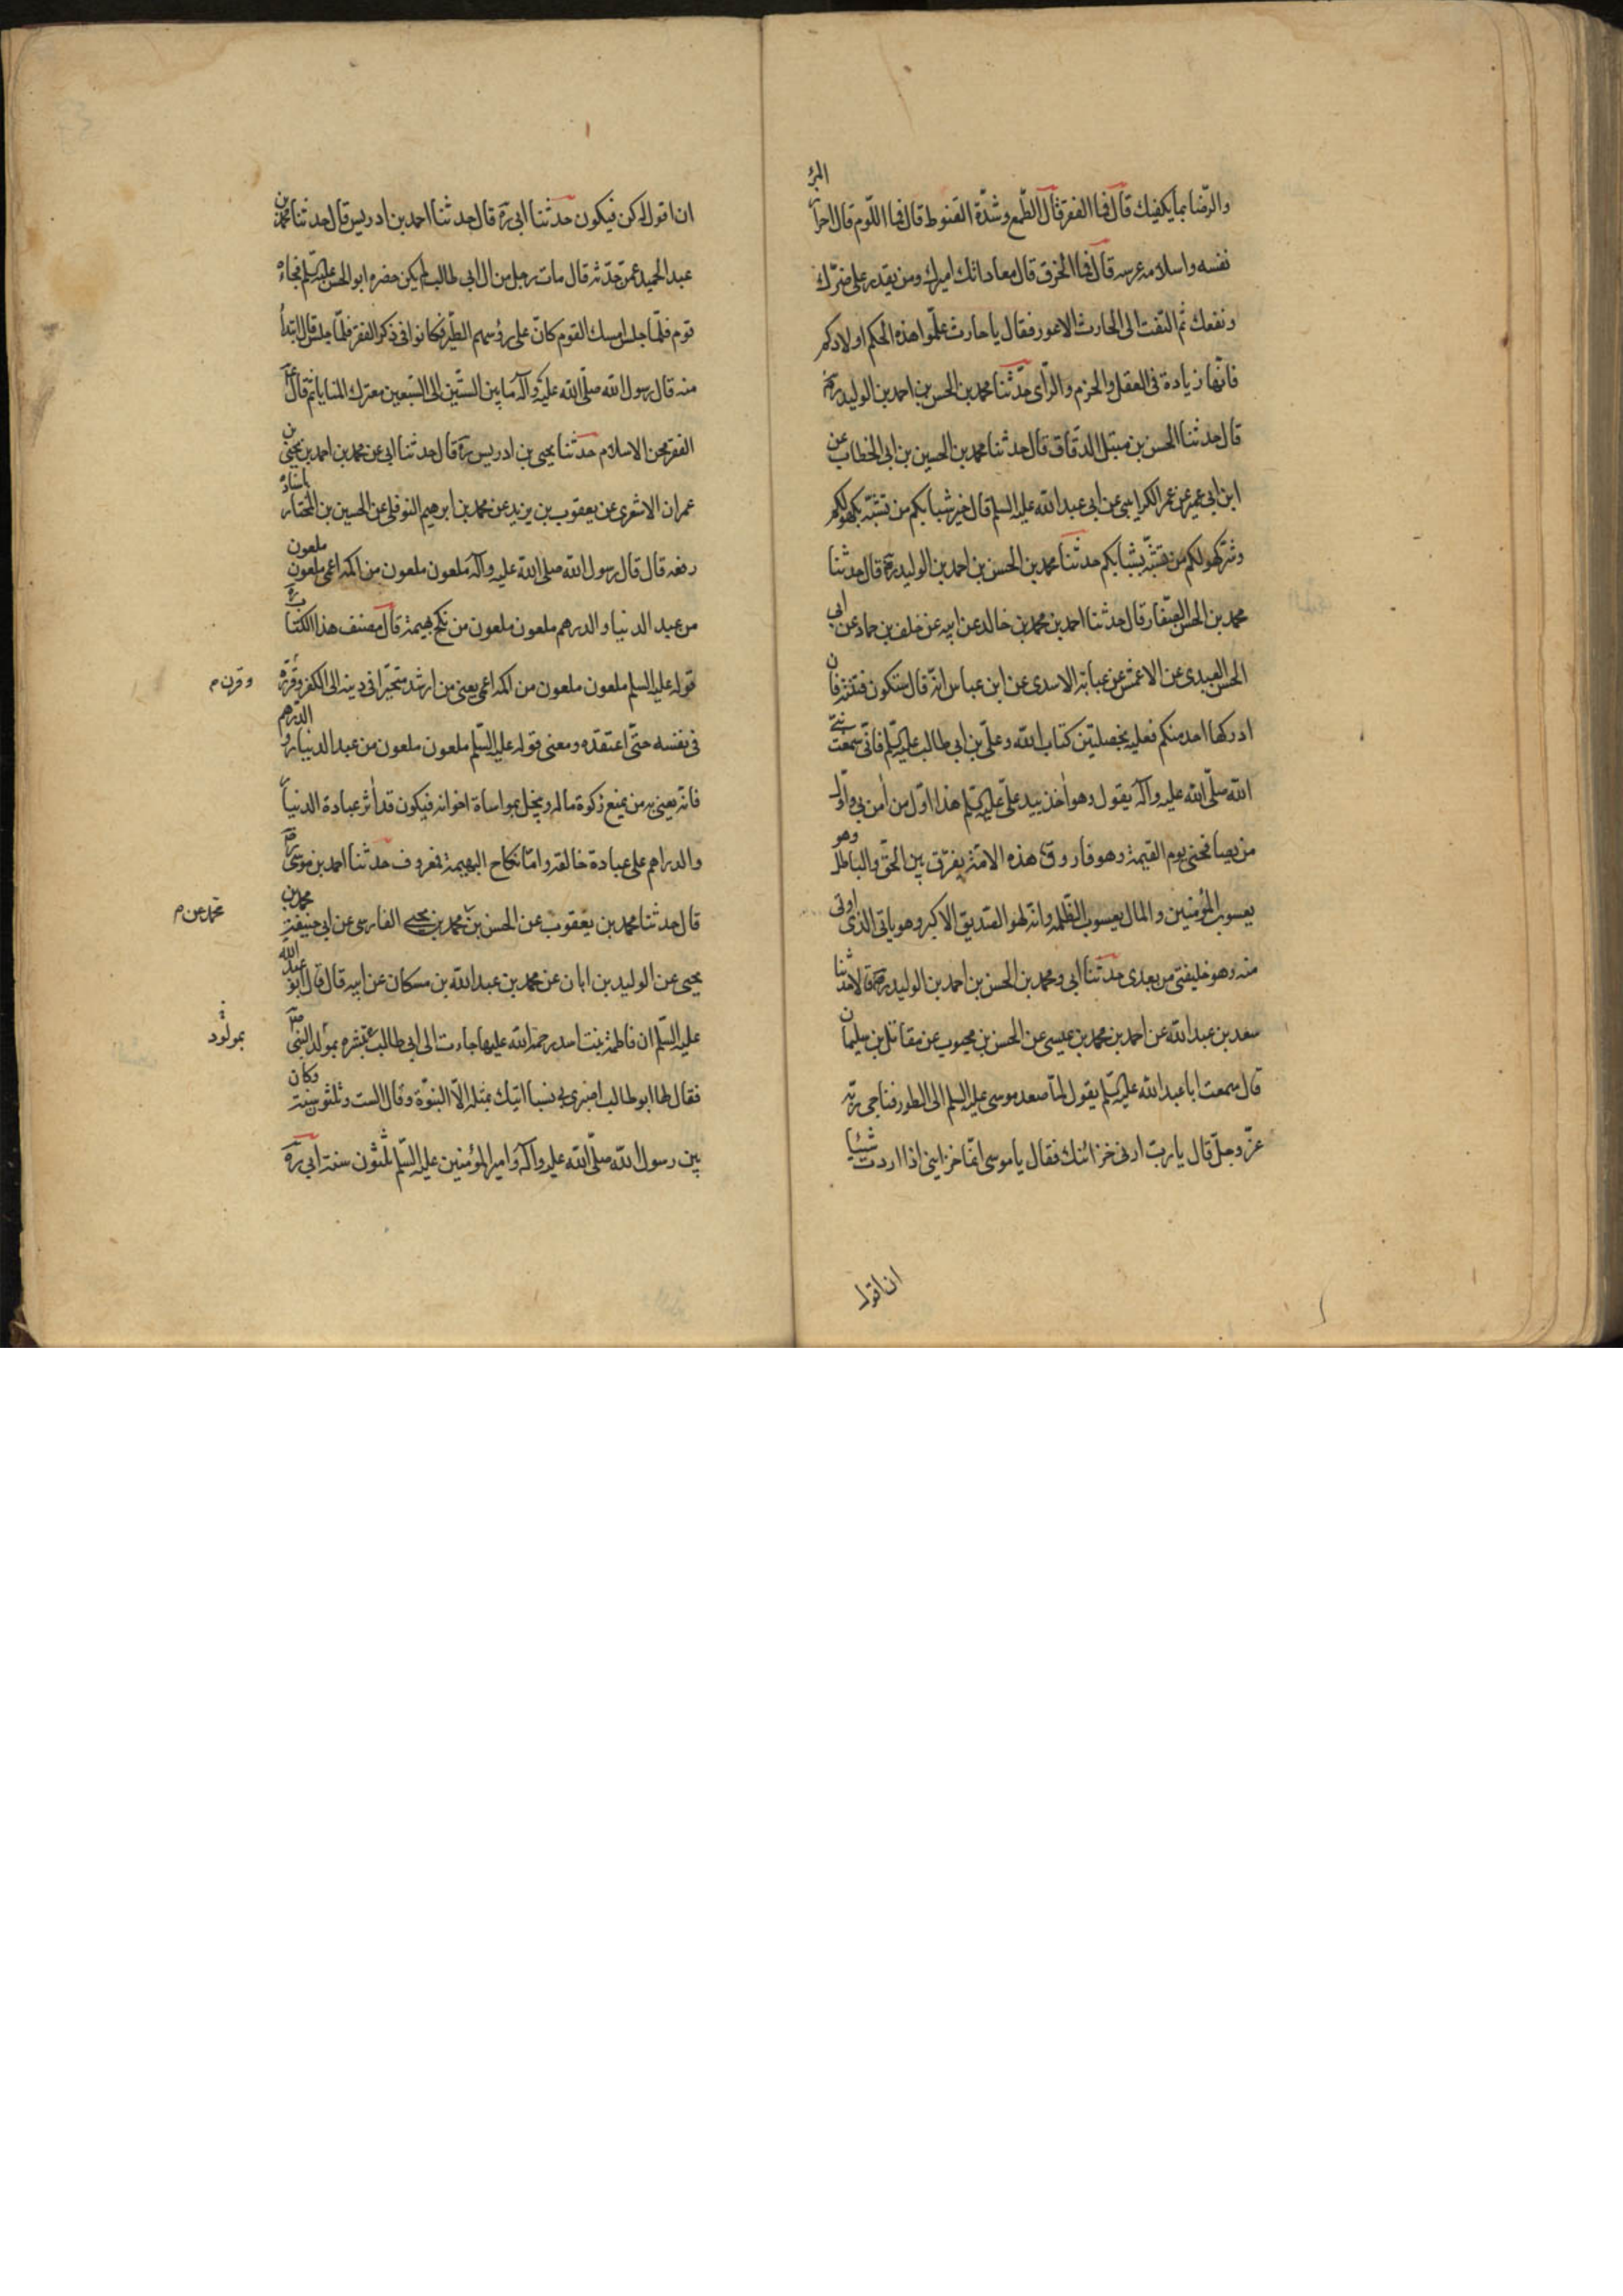 والرّضا بما يكفيك قال فما الفقر قال الطّمع وشدّة القنوط قال فما اللّوم قال احراز المرء
نفسه واسلامه عرسه قال فما الخرق قال معاداتك اميرك ومن يقدر على ضرّك
ونفعك ثم التفت الى الحارث الاعور فقال يا حارث علّموا هذه الحكم اولادكم
فانّها زيادة فى العقل والحزم والرّأى حدّثنا محمد بن الحسن بن احمد بن الوليد ره
قال حدثنا الحسن بن متيل الدقّاق قال حدثنا محمد بن الحسين بن ابى الخطاب عن
ابن ابى عمير عن عمر الكرابيسى عن ابى عبد الله عليه السلم قال خير شبابكم من تشبّه بكهولكم
وشرّ كهولكم من تشبّه بشبابكم حدثنا محمد بن الحسن بن احمد بن الوليد ره قال حدثنا
محمد بن الحسن الصفّار قال حدثنا احمد بن محمد بن خالد عن ابيه عن خلف بن حماد عن ابى
الحسن العبدى عن الاعمش عن عباية الاسدى عن ابن عباس انّه قال ستكون فتنة فان
ادركها احد منكم فعليه بخصلتين كتاب الله وعلىّ بن ابى طالب عليه السّلم فانّى سمعت نبىّ
الله صلّى الله عليه وآله يقول وهو اخذ بيد علىّ عليه السّلم هذا اوّل من امن بى واوّل
من يصافحنى يوم القيمة وهو فاروق هذه الامّة يفرّق بين الحقّ والباطل وهو
يعسوب المؤمنين والمال يعسوب الظّلمة وانّه لهو الصّديق الاكبر وهو بابى الذى اوتى
منه وهو خليفتى من بعدى حدثنا ابى ومحمد بن الحسن بن احمد بن الوليد ره قالا حدثنا
سعد بن عبد الله عن احمد بن محمد بن عيسى عن الحسن بن محبوب عن مقاتل بن سليمان
قال سمعت ابا عبد الله عليه السّلم يقول لمّا صعد موسى عليه السلم الى الطور فناجى ربّه
عزّ وجلّ قال يا ربّ ارنى خزائنك فقال يا موسى انّما خزاينى اذا اردت شيئا
ان اقول
ان اقول له كن فيكون حدثنا ابى ره قال حدثنا احمد بن ادريس قال حدثنا محمد بن
عبد الحميد عمّن حدّثه قال مات رجل من ال ابى طالب لم يكن حضره ابو الحسن عليه السّلم فجاءه
قوم فلمّا جلس امسك القوم كانّ على رؤسهم الطّير فكانوا فى ذكر الفقر فلمّا جلس قال ابتداء
منه قال رسول الله صلّى الله عليه وآله ما بين الستّين الى السّبعين معترك المنايا ثم قال ع
الفقر محن الاسلام حدثنا يحيى بن ادريس ره قال حدثنا ابى عن محمد بن احمد بن يحيى بن
عمران الاشعرى عن يعقوب بن يزيد عن محمد بن ابرهيم النوفلى عن الحسين بن المختار باسناده
رفعه قال قال رسول الله صلى الله عليه وآله ملعون ملعون من اكمه اعمى ملعون ملعون
من عبد الدنيا والدرهم ملعون ملعون من نكح بهيمة قال مصنف هذا الكتاب ره
قوله عليه السلم ملعون ملعون من اكمه اعمى يعنى من ارشد متحيّرا فى دينه الى الكفر وقرّره
وقرن م
فى نفسه حتّى اعتقده ومعنى قوله عليه السّلم ملعون ملعون من عبد الدينار والدرهم
فانّه يعنى به من يمنع زكوة ماله ويبخل بمواساة اخوانه فيكون قد اثر عبادة الدنيار
والدراهم على عبادة خالقه وامّا نكاح البهيمة فمعروف حدثنا احمد بن موسى ره
قال حدثنا محمد بن يعقوب عن الحسن بن محمد بن يحيى الفارسى عن ابى حنيفة محمد بن
محمد عن م
يحيى عن الوليد بن ابان عن محمد بن عبد الله بن مسكان عن ابيه قال قال ابو عبد الله
عليه السّلم ان فاطمة بنت اسد رحمة الله عليها جاءت الى ابى طالب ع تبشره بمولد النبى ص
بمولود
فقال لها ابو طالب اصبرى لى سبتا اتيك بمثله الّا النبوّة وقال السبت ثلثون سنة وكان
بين رسول الله صلّى الله عليه وآله وامير المؤمنين عليه السّلم ثلثون سنة ابى ره